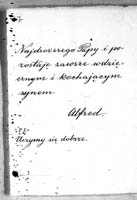 Najdroższego Papy i po-
zostaje zawsze wdzię-
cznym i kochającym
synem
Alfred.
Uczymy się dobrze.